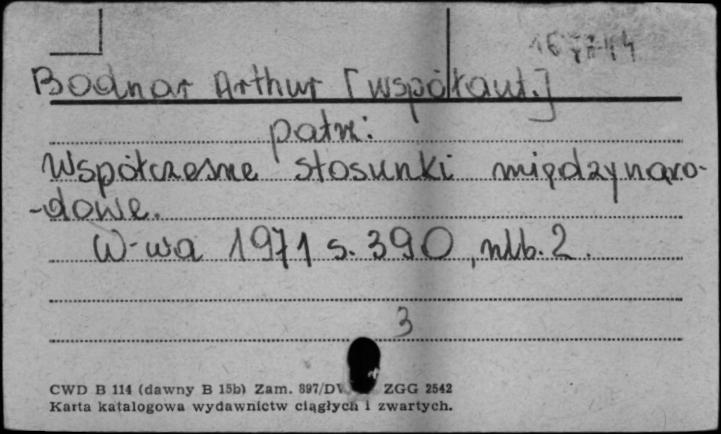 Bodnar Arthur [współaut.]
patrz:
Współczesne stosunki międzynaro-
-dowe.
W-wa 1971 s. 390, nlb. 2.
3
CWD B 114 (dawny B 15b) Zam. 897/DW ZGG 2542
Karta katalogowa wydawnictw ciągłych i zwartych.